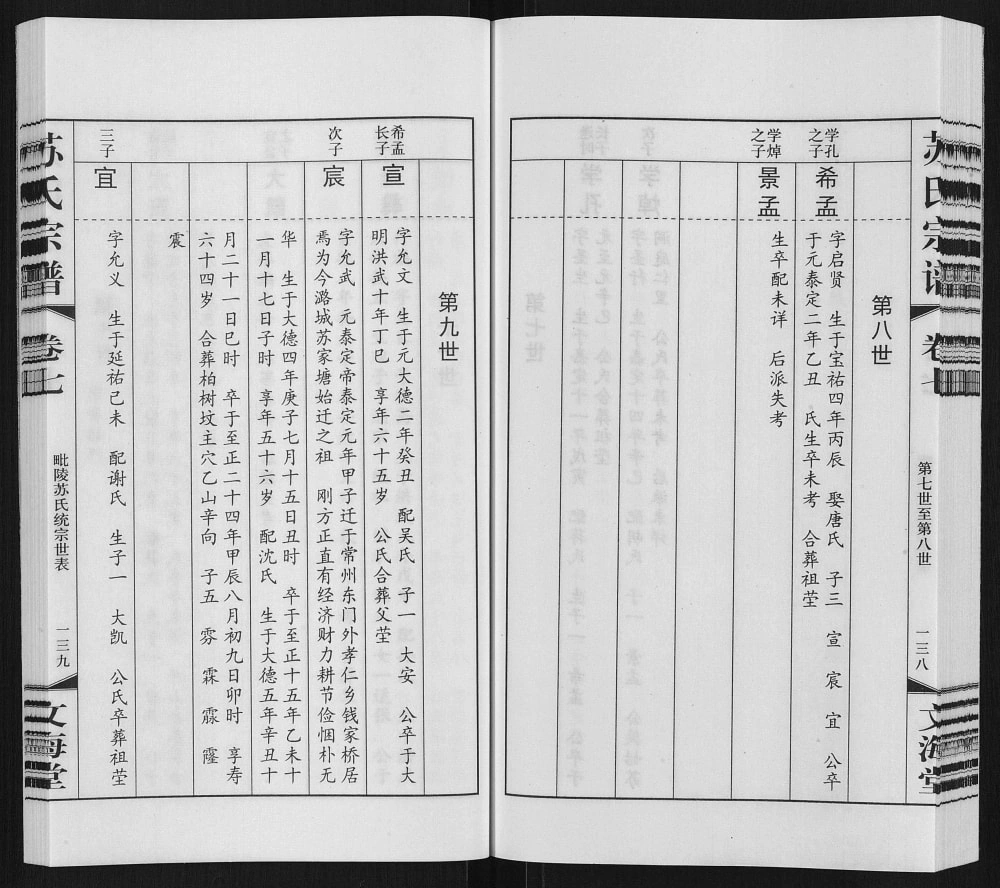 苏氏宗谱
卷七
第七世至第八世
一三八
文海堂
第八世
学孔之子
希孟
字启贤 生于宝祐四年丙辰 娶唐氏 子三 宣 宸 宜 公卒
于元泰定二年乙丑 氏生卒未考 合葬祖茔
学焯之子
景孟
生卒配未详 后派失考
第九世
希孟长子
宣
字允文 生于元大德二年癸丑 配吴氏 子一 大安 公卒于大
明洪武十年丁巳 享年六十五岁 公氏合葬父茔
次子
宸
字允武 元泰定帝泰定元年甲子迁于常州东门外孝仁乡钱家桥居
焉为今潞城苏家塘始迁之祖 刚方正直有经济财力耕节俭悃朴无
华 生于大德四年庚子七月十五日丑时 卒于至正十五年乙未十
一月十七日子时 享年五十六岁 配沈氏 生于大德五年辛丑十
月二十一日巳时 卒于至正二十四年甲辰八月初九日卯时 享寿
六十四岁 合葬柏树坟主穴乙山辛向 子五 雰 霖 霢 霳
震
三子
宜
字允义 生于延祐己未 配谢氏 生子一 大凯 公氏卒葬祖茔
苏氏宗谱
卷七
毗陵苏氏统宗世表
一三九
文海堂